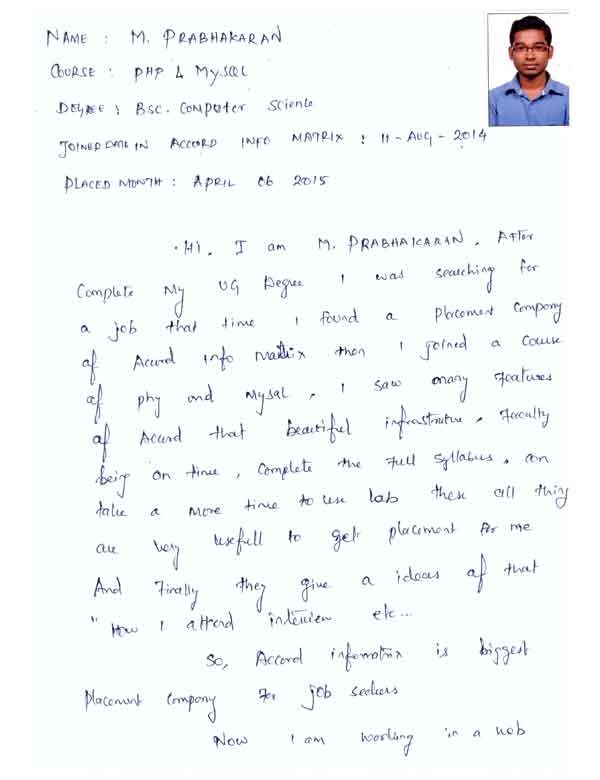 NAME : M. PRABHAKARAN
COURSE : PHP & MySQL
DEGREE : BSC. Computer Science
JOINED DATE IN ACCORD INFO MATRIX : 11-AUG-2014
PLACED MONTH : APRIL 06 2015
Hi. I am M. PRABHAKARAN. After
Complete My UG Degree I was searching for
a job that time I found a placement Company
of Accord Info Matrix then I joined a Course
of php and Mysql, I saw many Features
of Accord that beautiful infrastructure, Faculty
being on time, Complete the Full Syllabus, can
take a more time to use lab these all thing
are very usefull to get placement for me
And Finally they give a ideas of that
" How I attend interview etc...
So, Accord infomatrix is biggest
Placement Company For job seekers
Now I am working in a web